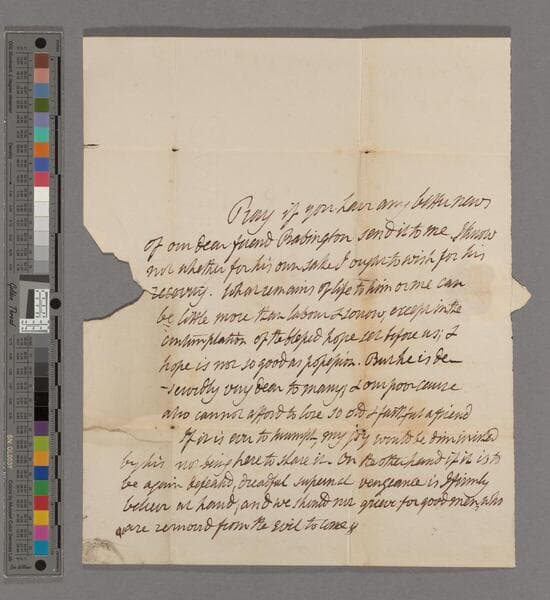 Pray if you have any better news
of our dear friend Babington send it to me. I know
not whether for his own sake I ought to wish for his
recovery. What remains of life to him or me can
be little more than labour & sorrow, except in the
contemplation of the blessed hope set before us; &
hope is not so good as possession. But he is de-
-servedly very dear to many, & our poor cause
also cannot afford to lose so old & faithful a friend
If it is ever to triumph, my joy would be diminished
by his not being here to share it. On the other hand if it is to
be again defeated, dreadful supernal vengeance is I firmly
believe at hand, and we should not grieve for good men, who
are removed from the Evil to come